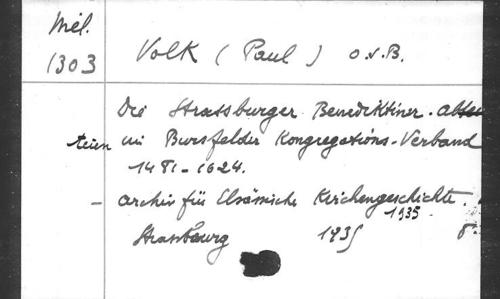 Mél.
1303
Volk (Paul) O.S.B.
Die Strassburger Benediktiner-Abteien
im Bursfelder Kongregations-Verband
1481-1624.
- Archiv für Elsässische Kirchengeschichte. 1935.
Strassburg 1935 8°